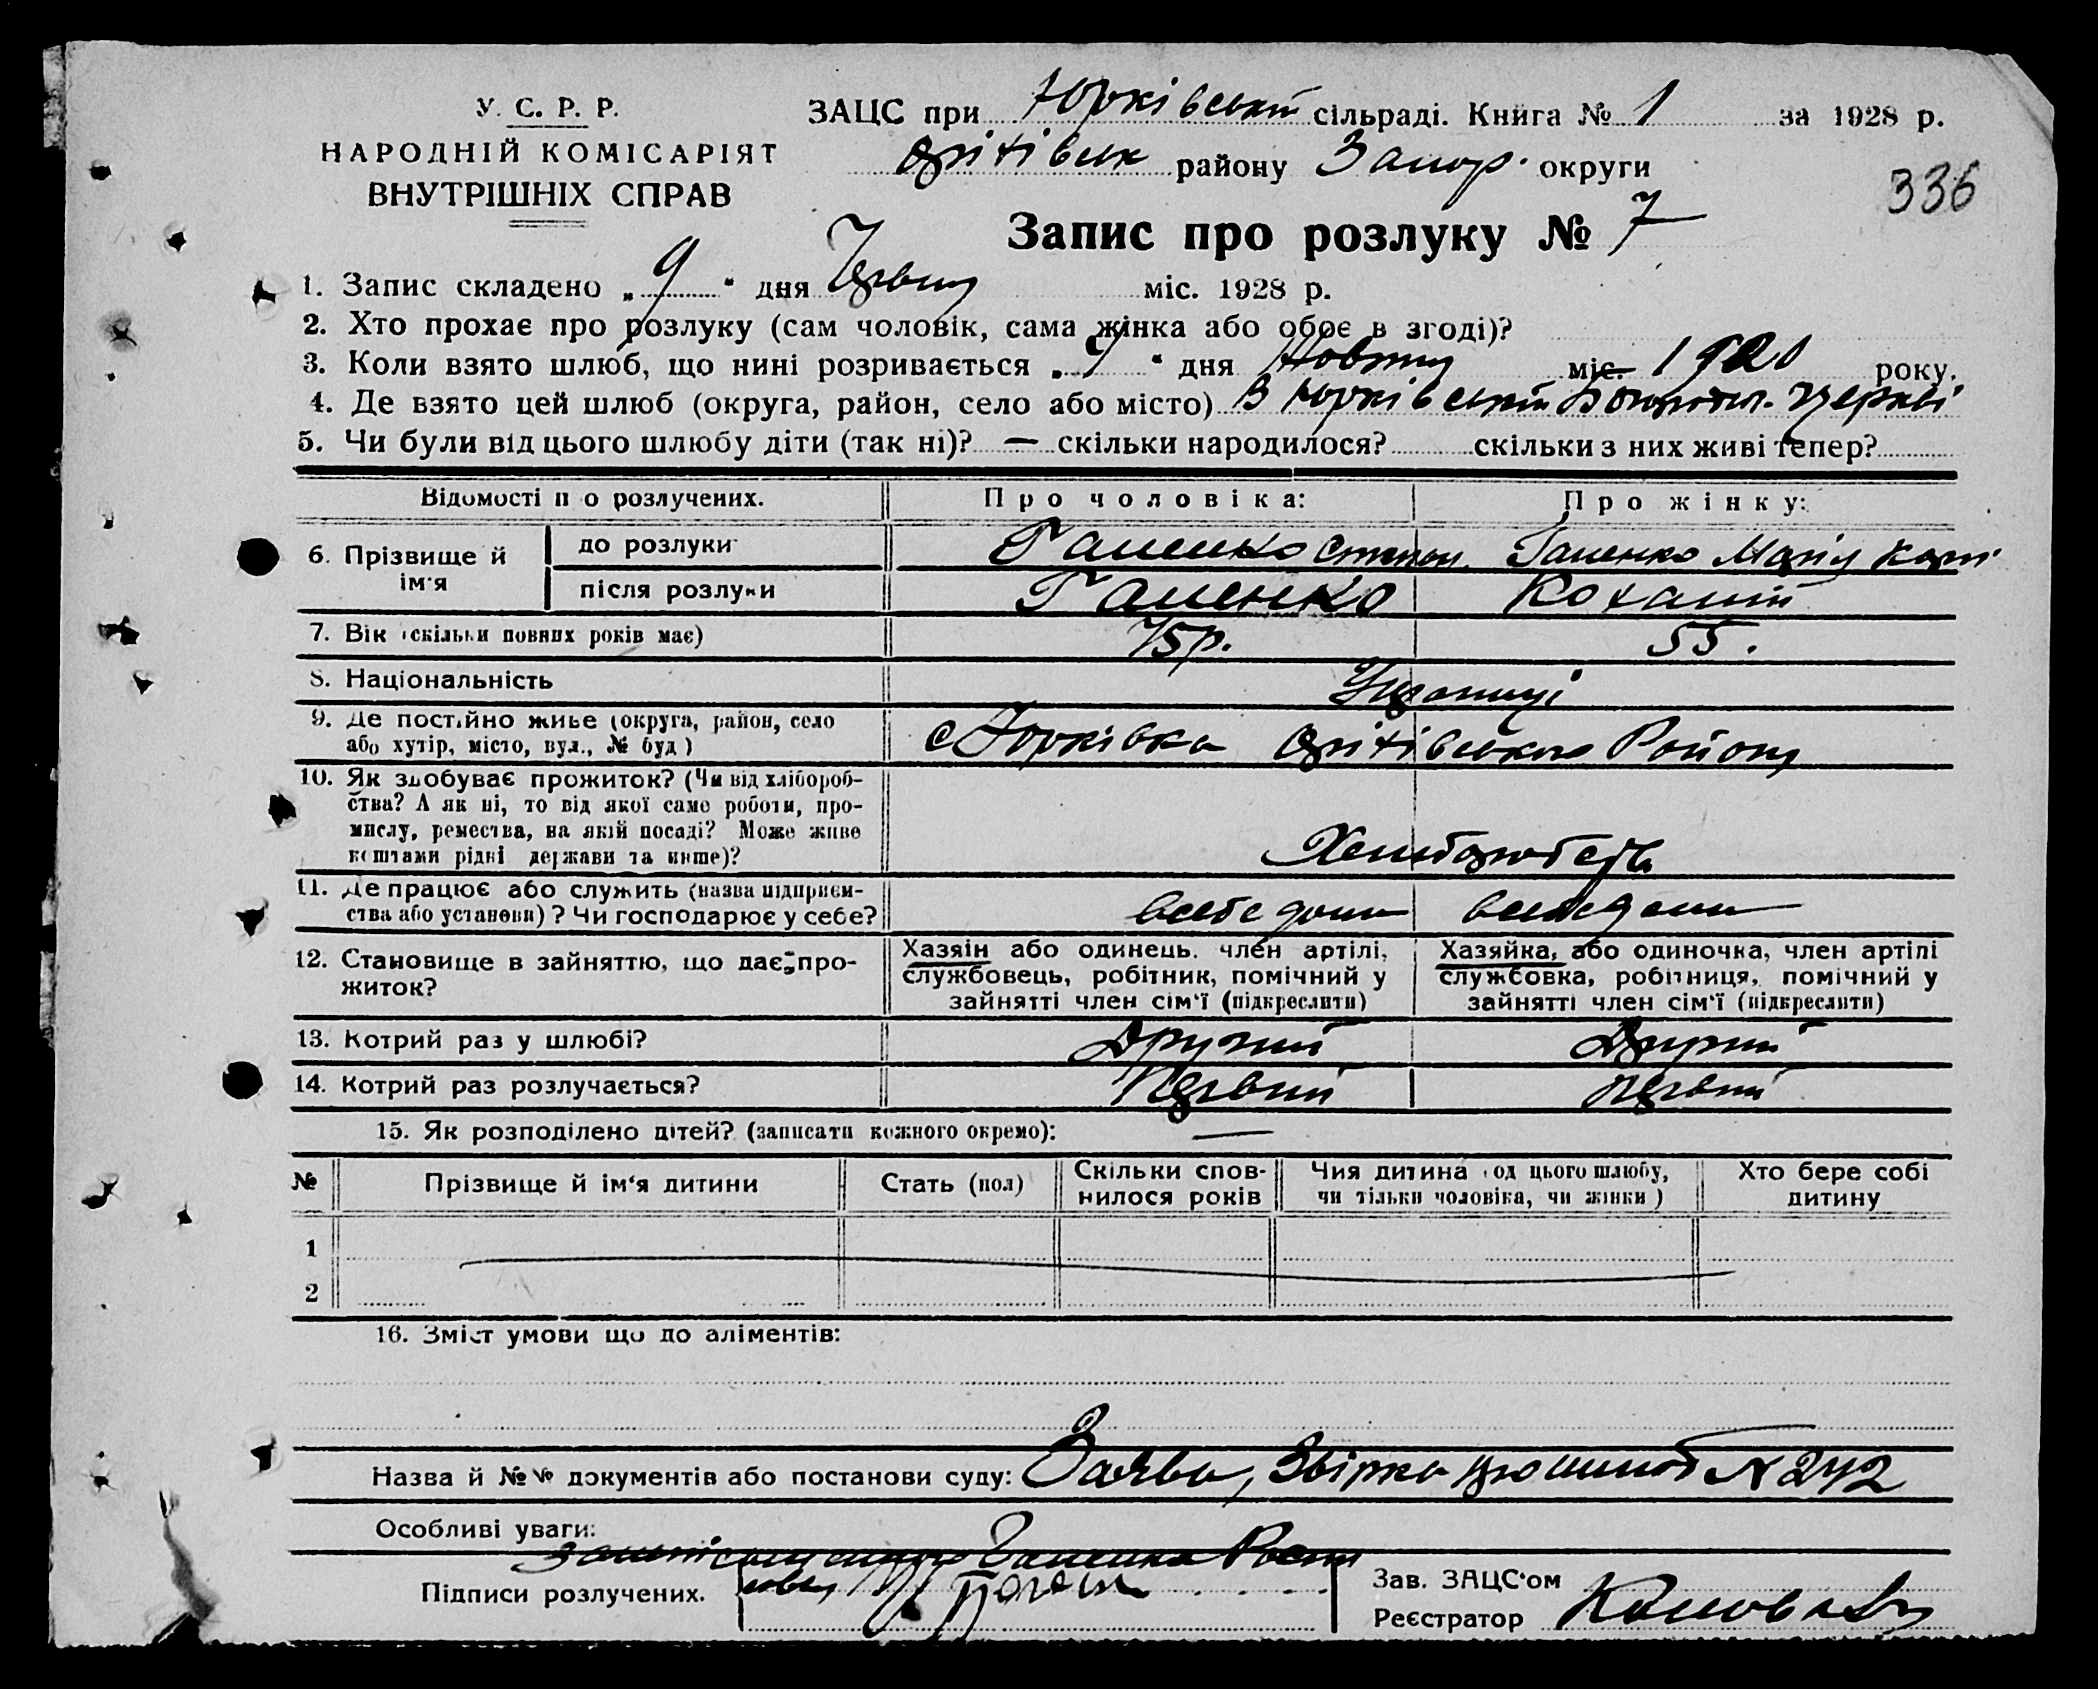 У. С. Р. Р.
НАРОДНІЙ КОМІСАРІЯТ
ВНУТРІШНІХ СПРАВ
ЗАЦС при Юрківській сільраді. Книга № 1 за 1928 р.
Оріхівськ району Запор. округи
336
Запис про розлуку № 7
1. Запис складено „9“ дня Червня міс. 1928 р.
2. Хто прохає про розлуку (сам чоловік, сама жінка або обоє в згоді)?
3. Коли взято шлюб, що нині розривається „9“ дня Жовтня міс. 1920 року.
4. Де взято цей шлюб (округа, район, село або місто) В Юрківській церкві
5. Чи були від цього шлюбу діти (так ні)? — скільки народилося? скільки з них живі тепер?
Відомості п о розлучених. Про чоловіка: Про жінку:
6. Прізвище й ім'я до розлуки Гаценко Степан Гаценко Марія
після розлуки Гаценко
7. Вік (скільки повних років має) 75 р. 55.
8. Національність Українці
9. Де постійно живе (округа, район, село
або хутір, місто, вул., № буд)
с Юрківка Оріхівського Району
10. Як здобуває прожиток? (Чи від хлібороб-
ства? А як ні, то від якої само роботи, про-
мислу, ремества, на якій посаді? Може живе
коштами рідні держави та инше)?
Хлиборобств
11. Де працює або служить (назва підприєм-
ства або установи)? Чи господарює у себе?
всебе дома всебе дома
12. Становище в зайняттю, що дає про-
житок?
Хазяін або одинець. член артілі,
службовець, робітник, помічний у
зайнятті член сім'ї (підкреслити)
Хазяйка, або одиночка, член артілі
службовка, робітниця, помічний у
зайнятті член сім'ї (підкреслити)
13. Котрий раз у шлюбі? Другий Другий
14. Котрий раз розлучається? Первий Первий
15. Як розподілено дітей? (записати кожного окремо): —
№ Прізвище й ім'я дитини Стать (пол) Скільки спов-
нилося років Чия дитина (од цього шлюбу,
чи тільки чоловіка, чи жінки) Хто бере собі
дитину
1
2
16. Зміст умови що до аліментів:
Назва й №№ документів або постанови суду: Заява, Звірка № 242
Особливі уваги:
Підписи розлучених.
Зав. ЗАЦС'ом
Реєстратор